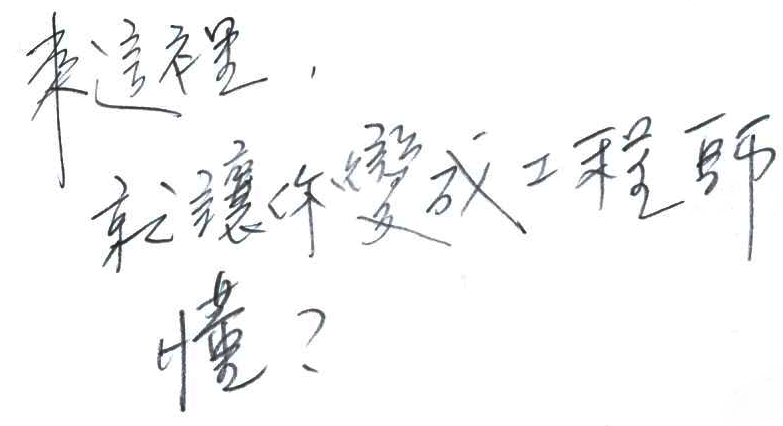 來這裡,
就讓你變成工程師
懂?